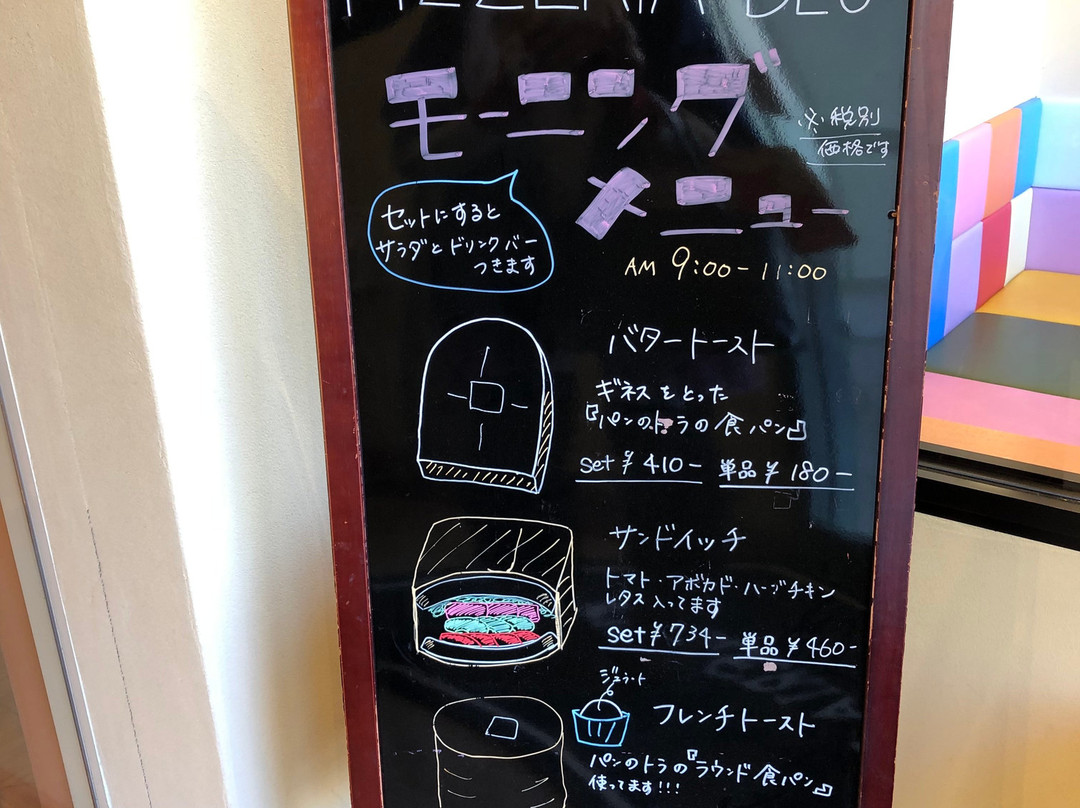 PIZZERIA BLU
モーニング
メニュー
※税別
価格です
セットにすると
サラダとドリンクバー
つきます
AM 9:00-11:00
バタートースト
ギネスをとった
『パンのトラの食パン』
set ¥410- 単品 ¥180-
サンドイッチ
トマト・アボカド・ハーブチキン
レタス入ってます
set ¥734- 単品 ¥460-
ジェラート
フレンチトースト
パンのトラの『ラウンド食パン』
使ってます!!!